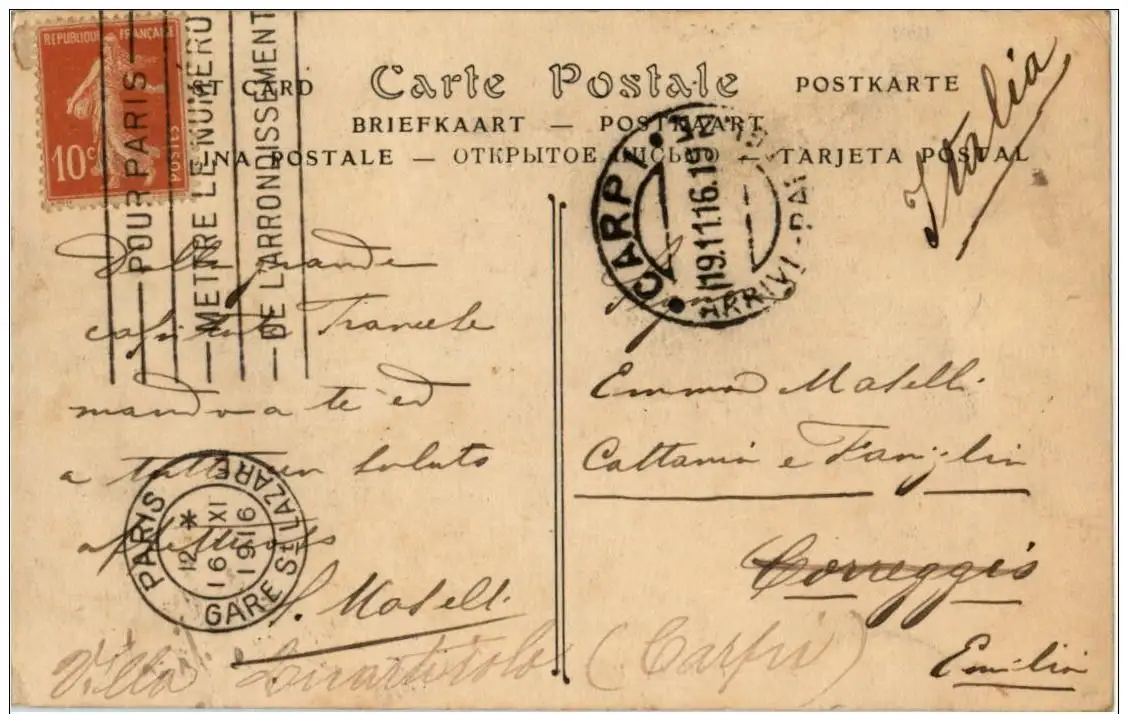 REPUBLIQUE FRANÇAISE
10c POSTES
POUR PARIS
METTRE LE NUMÉRO
DE L'ARRONDISSEMENT
ST CARD Carte Postale POSTKARTE
BRIEFKAART — POSTKAART
INA POSTALE — ОТКРЫТОЕ ПИСЬМО — TARJETA POSTAL
Italia
CARPI
19.11.16.19
ARRIVI
Dalla grande
capitale Francese
mando a te ed
a tutti un saluto
affettuoso
S. Maselli
PARIS
12 *
16 XI
1916
GARE ST LAZARE
Emma Maselli
Cattania e Famiglia
Correggio
Emilia
Villa
(Carpi)